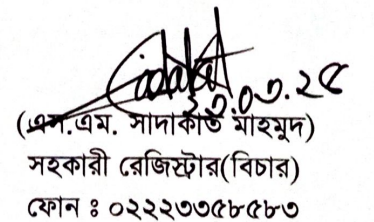 ২৩.০৩.২৫
(এস.এম. সাদাকাত মাহমুদ)
সহকারী রেজিস্ট্রার(বিচার)
ফোন ঃ ০২২২৩৩৫৮৫৮৩